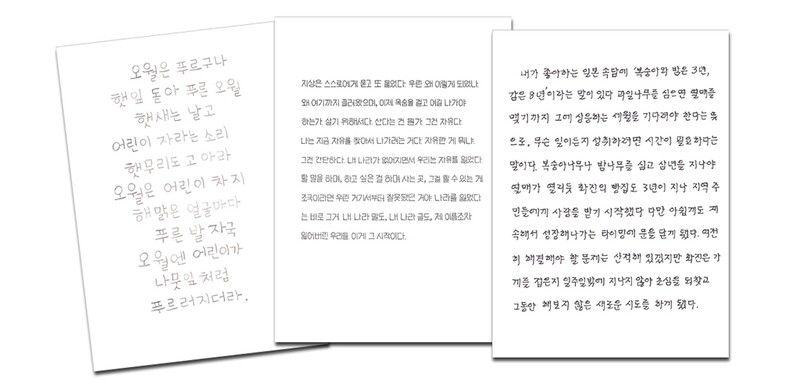 오월은 푸르구나
햇잎 돋아 푸른 오월
햇새는 날고
어린이 자라는 소리
햇무리도 고아라
오월은 어린이 차지
해맑은 얼굴마다
푸른 발자국
오월엔 어린이가
나뭇잎처럼
푸르러지더라.
지상은 스스로에게 묻고 또 물었다. 우린 왜 이렇게 되었나.
왜 여기까지 흘러왔으며, 이제 목숨을 걸고 어딜 나가야
하는가. 살기 위해서다. 산다는 건 뭔가. 그건 자유다.
나는 지금 자유를 찾아서 나가려는 거다. 자유란 게 뭐냐.
그건 간단하다. 내 나라가 없어지면서 우리는 자유를 잃었다.
할 말을 하며, 하고 싶은 걸 하며 사는 곳, 그걸 할 수 있는 게
조국이라면 우린 거기서부터 잘못됐던 거야. 나라를 잃었다
는 바로 그거. 내 나라 말도, 내 나라 글도, 제 이름조차
잃어버린 우리들. 이게 그 시작이다.
내가 좋아하는 일본 속담에 '복숭아와 밤은 3년,
감은 8년'이라는 말이 있다. 과일나무를 심으면 열매를
맺기까지 그에 상응하는 세월을 기다려야 한다는 뜻
으로, 무슨 일이든지 성취하려면 시간이 필요하다는
말이다. 복숭아나무나 밤나무를 심고 삼년을 지나야
열매가 열리듯 확진의 빵집도 3년이 지나 지역 주
민들에게 사랑을 받기 시작했다. 다만 아쉽게도 계
속해서 성장해나가는 타이밍에 문을 닫게 됐다. 여전
히 해결해야 할 문제는 산적해 있겠지만 확진은 가
게를 접은지 일주일밖에 지나지 않아 초심을 되찾고
그동안 해보지 않은 새로운 시도를 하게 됐다.